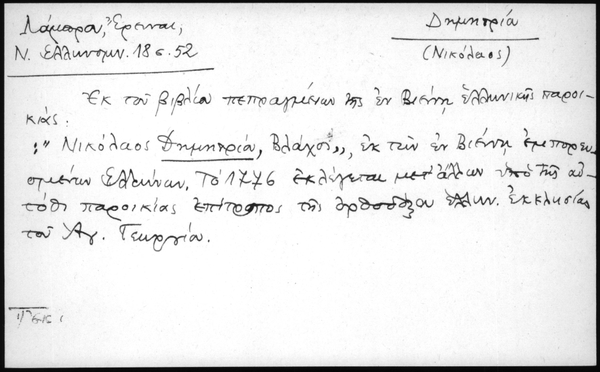 Λάμπρου, Ἔρευναι,
Ν. Ἑλληνομν. 18 σ. 52
Δημητρίου
(Νικόλαος)
Ἐκ τοῦ βιβλίου πεπραγμένων τῆς ἐν Βιέννῃ Ἑλληνικῆς παροι-
κίας:
"Νικόλαος Δημητρίου, Βλάχοι", ἐκ τῶν ἐν Βιέννῃ ἐμπορευ-
ομένων Ἑλλήνων. Τὸ 1776 ἐκλέγεται μετ' ἄλλων ὑπὸ τῆς αὐ-
τόθι παροικίας ἐπίτροπος τῆς ὀρθοδόξου ἑλλην. ἐκκλησίας
τοῦ Ἁγ. Γεωργίου.